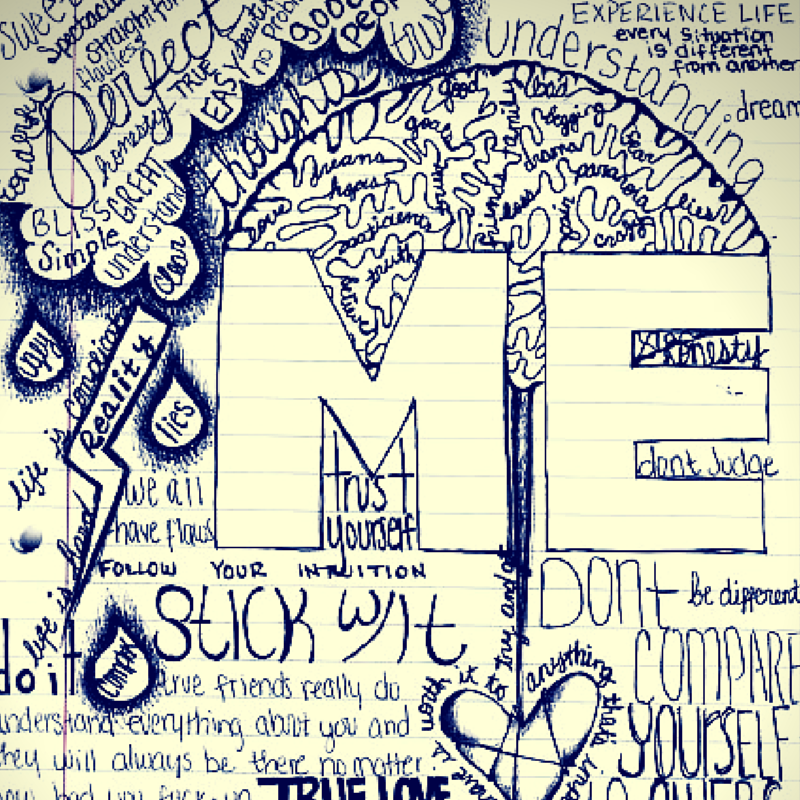 sweet
Spectacular
straight for
flawless
Perfect
TRUE
honesty
EASY
beauty
no problem
good
people
trust
BLISS
GREAT
Simple
understand
Clear
thoughts
understanding
EXPERIENCE LIFE
every situation
is different
from another
dream
good
goals
dreams
hopes
love
truth
believe
family
friends
bad
begging
fear
drama
paranoia
lies
less
pain
crazy
ME
honesty
dont Judge
trust
yourself
ugly
lies
life is complicated
Reality
life is hard
we all
have flaws
FOLLOW YOUR INTUITION
Stick w/ it
do it
true friends really do
understand everything about you and
they will always be there no matter
TRUE LOVE
DONt be different
COMPARE
YOURSELF
TO OTHERS
it to try and
anything that's